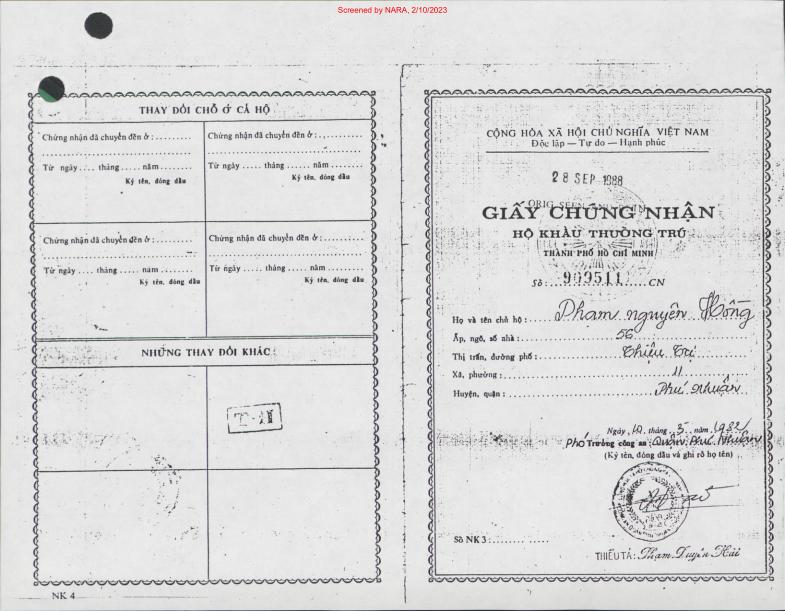 Screened by NARA, 2/10/2023
THAY ĐỔI CHỖ Ở CẢ HỘ
Chứng nhận đã chuyển đến ở : .........
Từ ngày ..... tháng ...... năm ........
Ký tên, đóng dấu
Chứng nhận đã chuyển đến ở : .........
Từ ngày ..... tháng ...... năm ........
Ký tên, đóng dấu
Chứng nhận đã chuyển đến ở : .........
Từ ngày .... tháng .... năm ........
Ký tên, đóng dấu
Chứng nhận đã chuyển đến ở : .........
Từ ngày ..... tháng .... năm ........
Ký tên, đóng dấu
NHỮNG THAY ĐỔI KHÁC :
NK 4
CỘNG HÒA XÃ HỘI CHỦ NGHĨA VIỆT NAM
Độc lập — Tự do — Hạnh phúc
28 SEP 1988
ORIG SEEN
GIẤY CHỨNG NHẬN
HỘ KHẨU THƯỜNG TRÚ
THÀNH PHỐ HỒ CHÍ MINH
Số : 909511 CN
Họ và tên chủ hộ : Phạm nguyên Hồng
Ấp, ngõ, số nhà : 56
Thị trấn, đường phố : Thiệu Trị
Xã, phường : 11
Huyện, quận : Phú Nhuận
Ngày 10 tháng 3 năm 1982
Phó Trưởng công an : Quận Phú Nhuận
(Ký tên, đóng dấu và ghi rõ họ tên)
Số NK 3 : ............
THIẾU TÁ : Phạm Duyên Hải